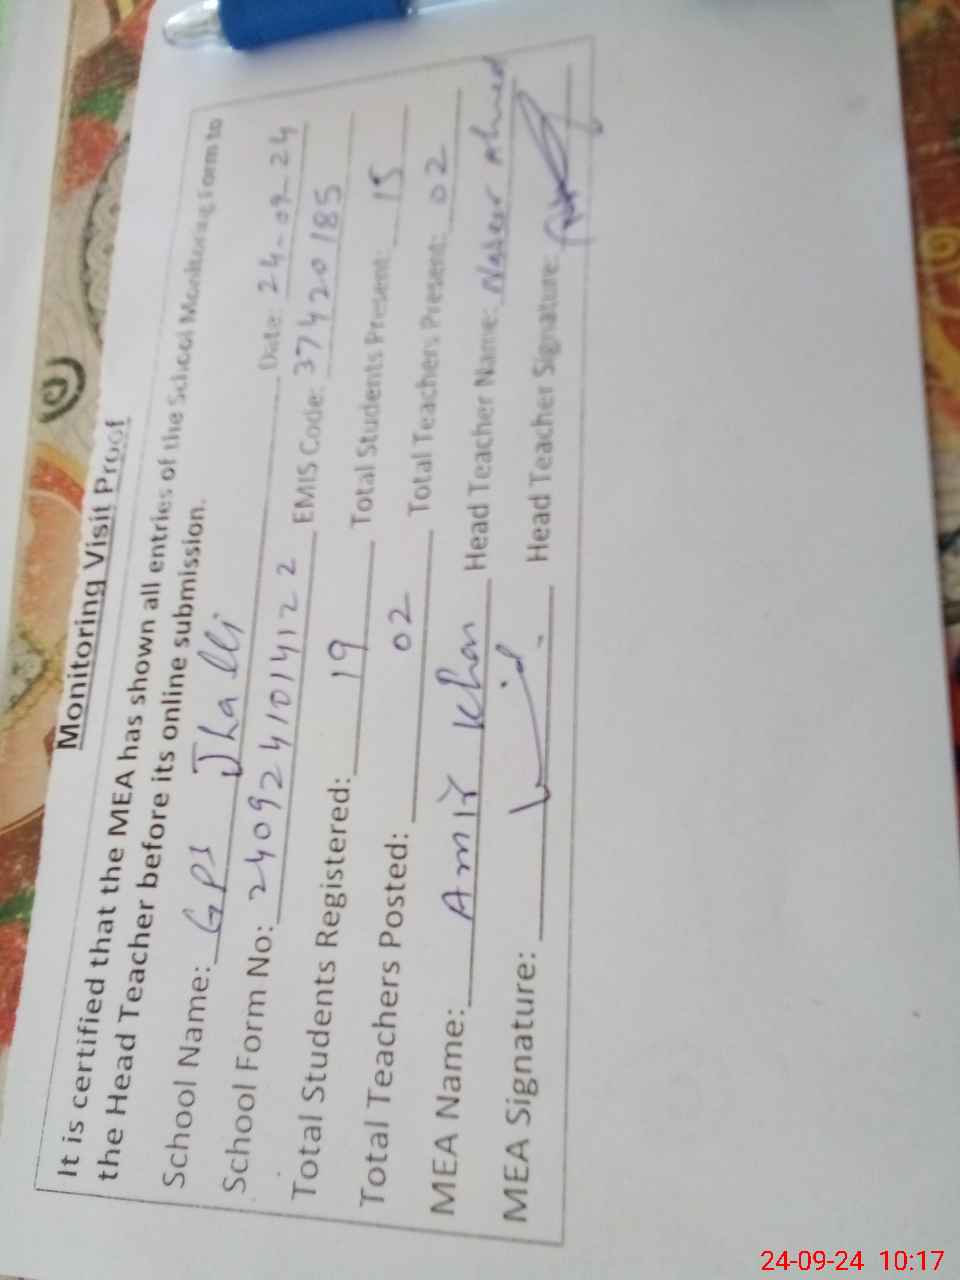 Monitoring Visit Proof
It is certified that the MEA has shown all entries of the School Monitoring Form to
the Head Teacher before its online submission.
School Name: GPS Jhalli Date: 24-09-24
School Form No: 240924101014122 EMIS Code: 37420185
Total Students Registered: 19 Total Students Present: 15
Total Teachers Posted: 02 Total Teachers Present: 02
MEA Name: Amir Khan Head Teacher Name: Naseer Ahmed
MEA Signature: Head Teacher Signature:
24-09-24 10:17